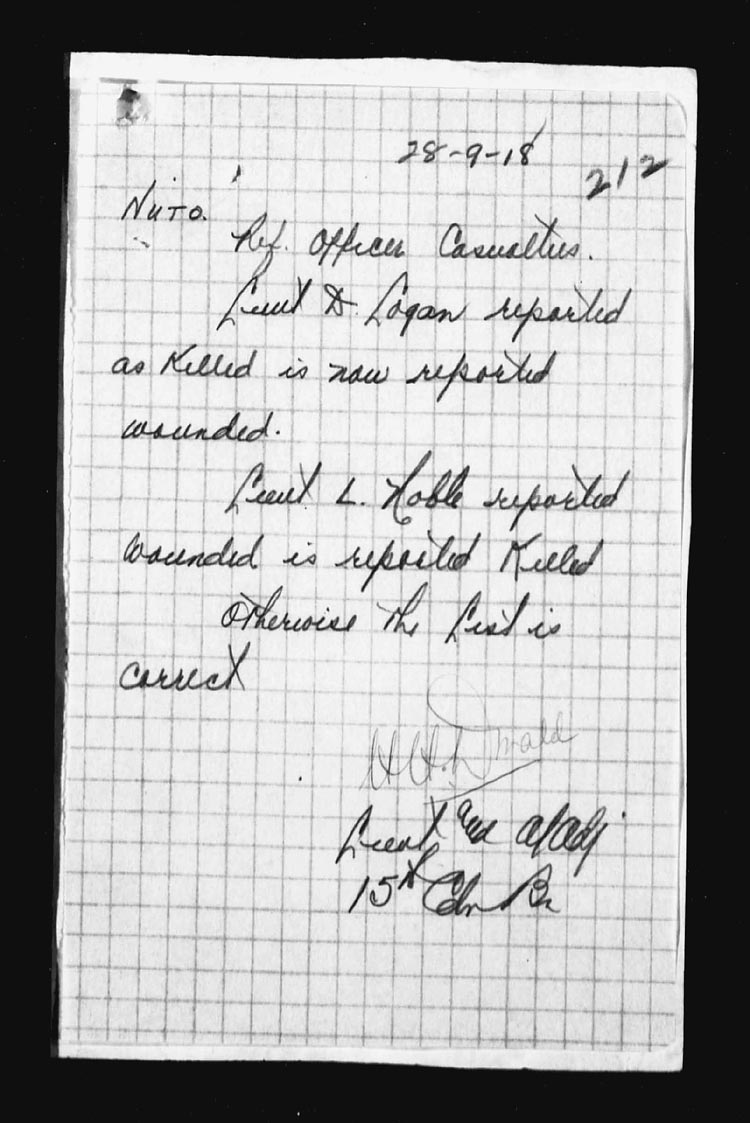 28-9-18
212
NUTO.
Ref. Officer Casualties.
Lieut D. Logan reported
as Killed is now reported
wounded.
Lieut L. Noble reported
wounded is reported Killed
Otherwise the List is
correct
Lieut and a/adj
15th Cdn Bn